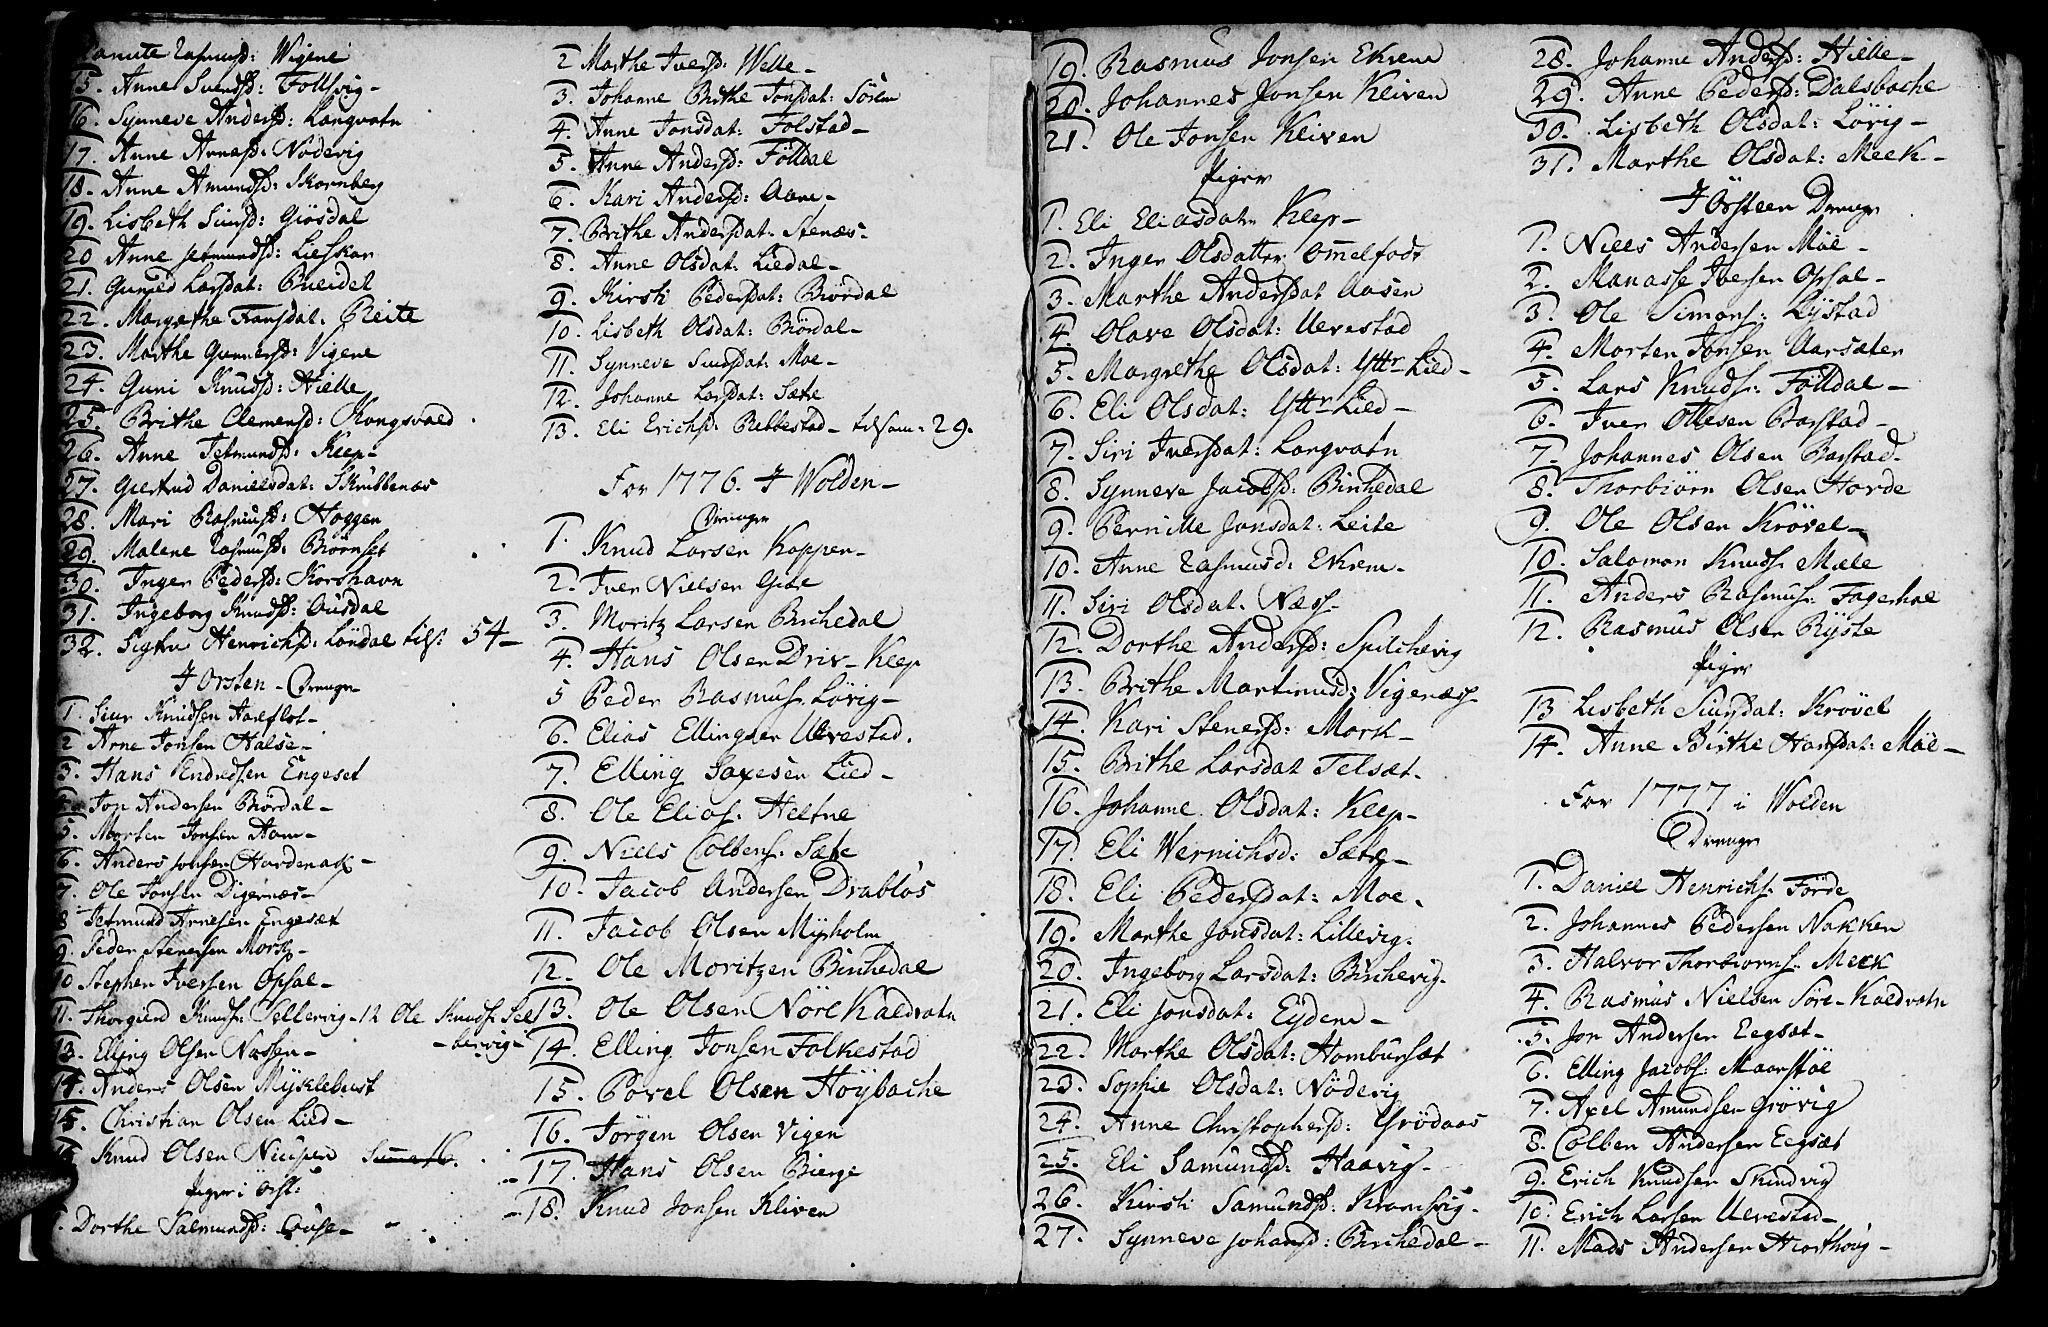 Rasmusd: Vigene
15. Anne Siursd: Follsvig-
16. Synneve Andersd: Langvatn
17. Anne Arnesd: Nodevig
18. Anne Amundsd: Skornberg
19. Lisbeth Siursd: Giösdal
20 Anne Jetmundsd: Liesskar
21. Guri Larsdat: Bueidet
22. Margrethe Hansdat: Reite
23. Marthe Gunnersd: Vigene
24. Guni Knudsd: Hielle
25. Brithe Clemensd: Kongsvold
26. Anne Jetmundsd: Kleep-
27. Giertrud Danielsdat: Skrubbenæs
28. Mari Rasmusd: Hoggen
29. Malene Rasmusd: Biörnset
30. Inger Pedersd: Korshavn
31. Ingeborg Knudsd: Ousdal
32. Sigtru Henrichsd: Löndal tils: 54-
I Orsten - Drenge-
1. Siur Knudsen Aarflot-
2 Arne Jonsen Halse-
3. Hans Endresen Engeset
4. Jon Andersen Biördal-
5. Morten Jonsen Aam-
6. Anders Jonsen Hardenack-
7. Ole Jonsen Digernæs-
8 Jetmund Arnesen Engeset
9. Peder Stenersen Mork-
10 Stephen Iversen Opsal-
11. Thorgierd Knuds: Sellevig-12 Ole Knuds: Sel
-levig-
13. Elling Olsen Næssen-
14. Anders Olsen Myklebust
15. Christian Olsen Lied-
16. Knud Olsen Niusen Summa 16.
Piger i Örst:
1. Dorthe Salmundsd: Couse-
2 Marthe Iversd: Welle-
3. Johanne Brithe Jonsdat: Sörem
4. Anne Jonsdat: Folstad-
5. Anne Andersd: Fölldal
6. Kari Andersd: Aam-
7. Brithe Andersdat: Stenæs-
8. Anne Olsdat: Liedal-
9. Kirsti Pedersdat: Biördal
10. Lisbeth Olsdat: Biördal-
11. Synneve Siursdat: Moe-
12. Johanne Larsdat: Sætre
13. Eli Erichsd: Ribbestad- tilsam: 29.
For 1776. I Wolden-
Drenge
1. Knud Larsen Koppen-
2. Iver Nielsen Gide
3. Moritz Larsen Birchedal
4. Hans Olsen Driv-Kleep
5 Peder Rasmus: Lövig-
6. Elias Ellingsen Ulvestad.
7. Elling Saxesen Lied-
8. Ole Elias: Heltne
9. Niels Colbens: Sætre
10. Jacob Andersen Drabløs
11. Jacob Olsen Myrholm
12. Ole Moritzen Birchedal
13. Ole Olsen Nörl Kaldvatn
14. Elling Jonsen Folkestad
15. Povel Olsen Höybache
16. Jörgen Olsen Vigen
17. Hans Olsen Bierge
18. Knud Jonsen Kliven
19. Rasmus Jonsen Ekrene
20. Johannes Jonsen Kliven
21. Ole Jonsen Kliven
Piger
1. Eli Eliasdatr Kleep-
2. Inger Olsdatter Ommelfodt
3. Marthe Andersdat Aasen
4. Olave Olsdat: Ulvestad
5. Margrethe Olsdat: Yttr Lied-
6. Eli Olsdat: Yttr Lied-
7. Siri Iversdat: Langvatn
8. Synneve Jacobsd: Birchedal
9. Pernille Jonsdat: Leite
10. Anne Rasmusd: Ekrem-
11. Siri Olsdat: Næss-
12. Dorthe Andersd: Spilchevig
13. Brithe Martinusd: Vigenæss-
14. Kari Stenersd: Mork-
15. Brithe Larsdat Telsæt-
16. Johanne Olsdat: Kleep-
17. Eli Wernichsd: Sætre-
18. Eli Pedersdat: Moe.
19. Marthe Jonsdat: Lillevig.
20. Ingeborg Larsdat: Birchevig.
21. Eli Jonsdat: Eydem-
22. Marthe Olsdat: Homburset
23. Sophie Olsdat: Nödevig
24. Anne Christophersd: Grödaas
25. Eli Samundsd: Haavig-
26. Kirsti Samundsd: Kramsvig.
27. Synneve Johansd: Birchedal-
28. Johanne Andersd: Hielle-
29. Anne Pedersd: Dalsbache
30. Lisbeth Olsdat: Lövig-
31. Marthe Olsdat: Meek-
I Örsteen Drenge
1. Niels Andersen Moe-
2. Manasse Iversen Opsal-
3. Ole Simons: Lystad
4. Morten Jonsen Aarsæter
5. Lars Knuds: Fölldal-
6. Iver Ottesen Barstad-
7. Johannes Olsen Barstad-
8. Thorbiörn Olsen Horde
9. Ole Olsen Krövel-
10. Salomon Knuds. Mæle
11. Anders Rasmus: Fagerhol
12. Rasmus Olsen Ryste
Piger
13 Lisbeth Siursdat: Krövel
14. Anne Birthe Hansdat: Moe-
For 1777 i Wolden
Drenge
1. Daniel Henrichs. Förde
2. Johannes Pedersen Nakken
3. Halvor Thorbiorns: Meek
4. Rasmus Nielsen Söre-Kaldvatn
5. Jon Andersen Eegsæt-
6. Elling Jacobs: Maarstöl
7. Axel Amundsen Grövig
8. Colben Andersen Eegsæt
9. Erich Knudsen Skindvig
10. Erich Larsen Ulvestad-
11. Mads Andersen Hiorthoug-